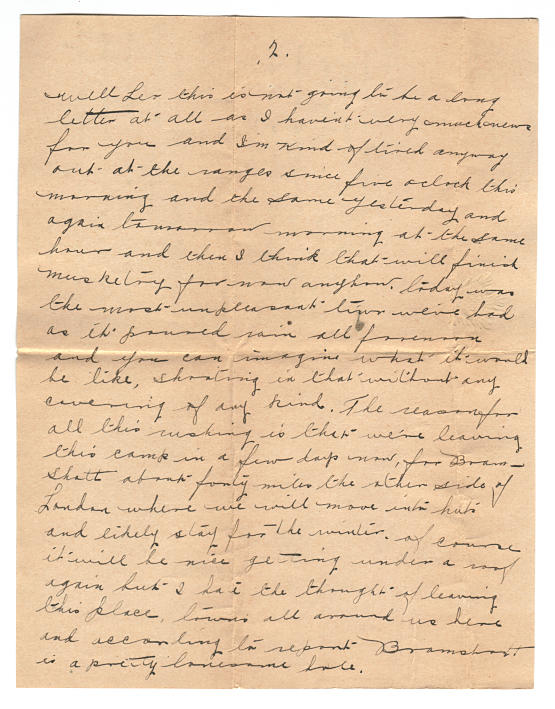 2.
well Les this is not going to be a long
letter at all as I haven't very much news
for you and I'm kind of tired anyway
out at the ranges since five oclock this
morning and the same yesterday and
again tomorrow morning at the same
hour and then I think that will finish
musketry for now anyhow. today was
the most unpleasant time weve had
as it poured rain all forenoon
and you can imagine what it would
be like, shooting in that without any
covering of any kind. The reason for
all this rushing is that we're leaving
this camp in a few days now, for Bram-
shott about forty miles the other side of
London where we will move into huts
and likely stay for the winter. of course
it will be nice getting under a roof
again but I hate the thought of leaving
this place, towns all around us here
and according to report Bramshott
is a pretty lonesome hole.